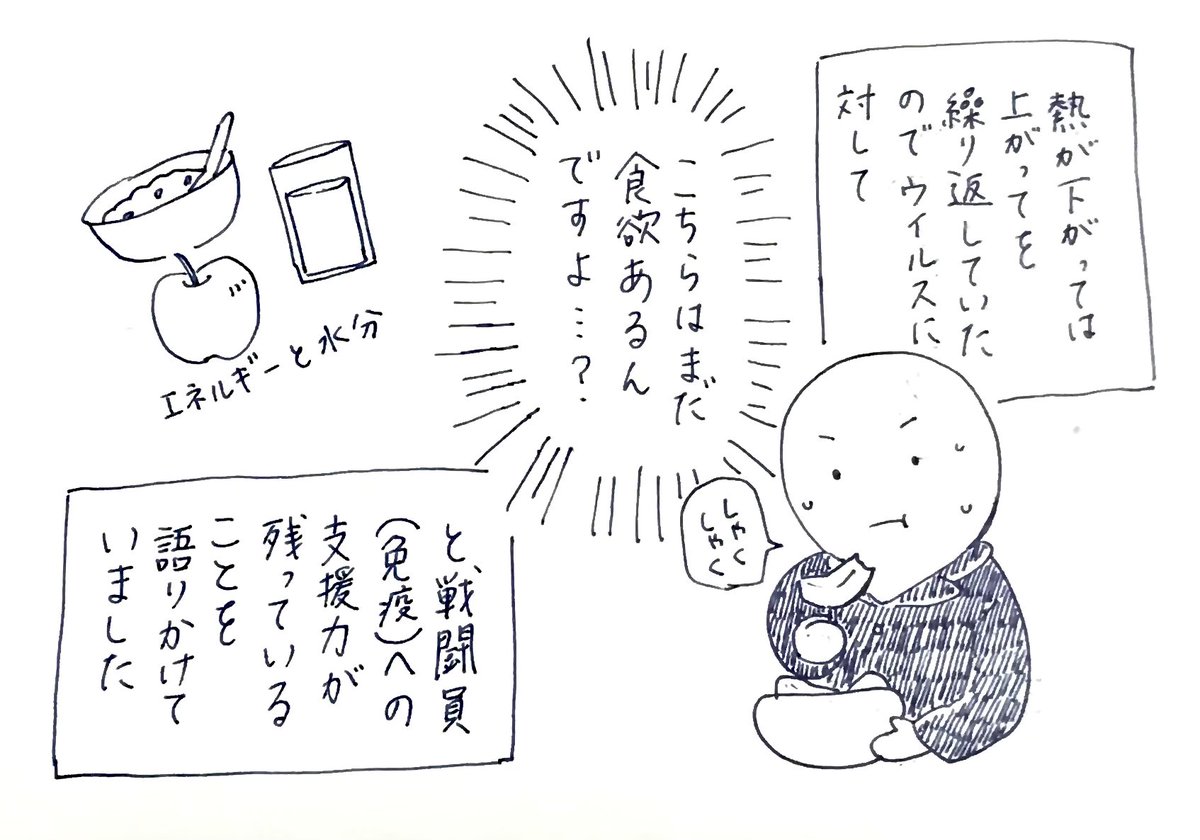 熱が下がっては
上がってを
繰り返していた
のでウイルスに
対して
こちらはまだ
食欲あるん
ですよ…?
エネルギーと水分
しゃく
しゃく
と、戦闘員
(免疫)への
支援力が
残っている
ことを
語りかけて
いました